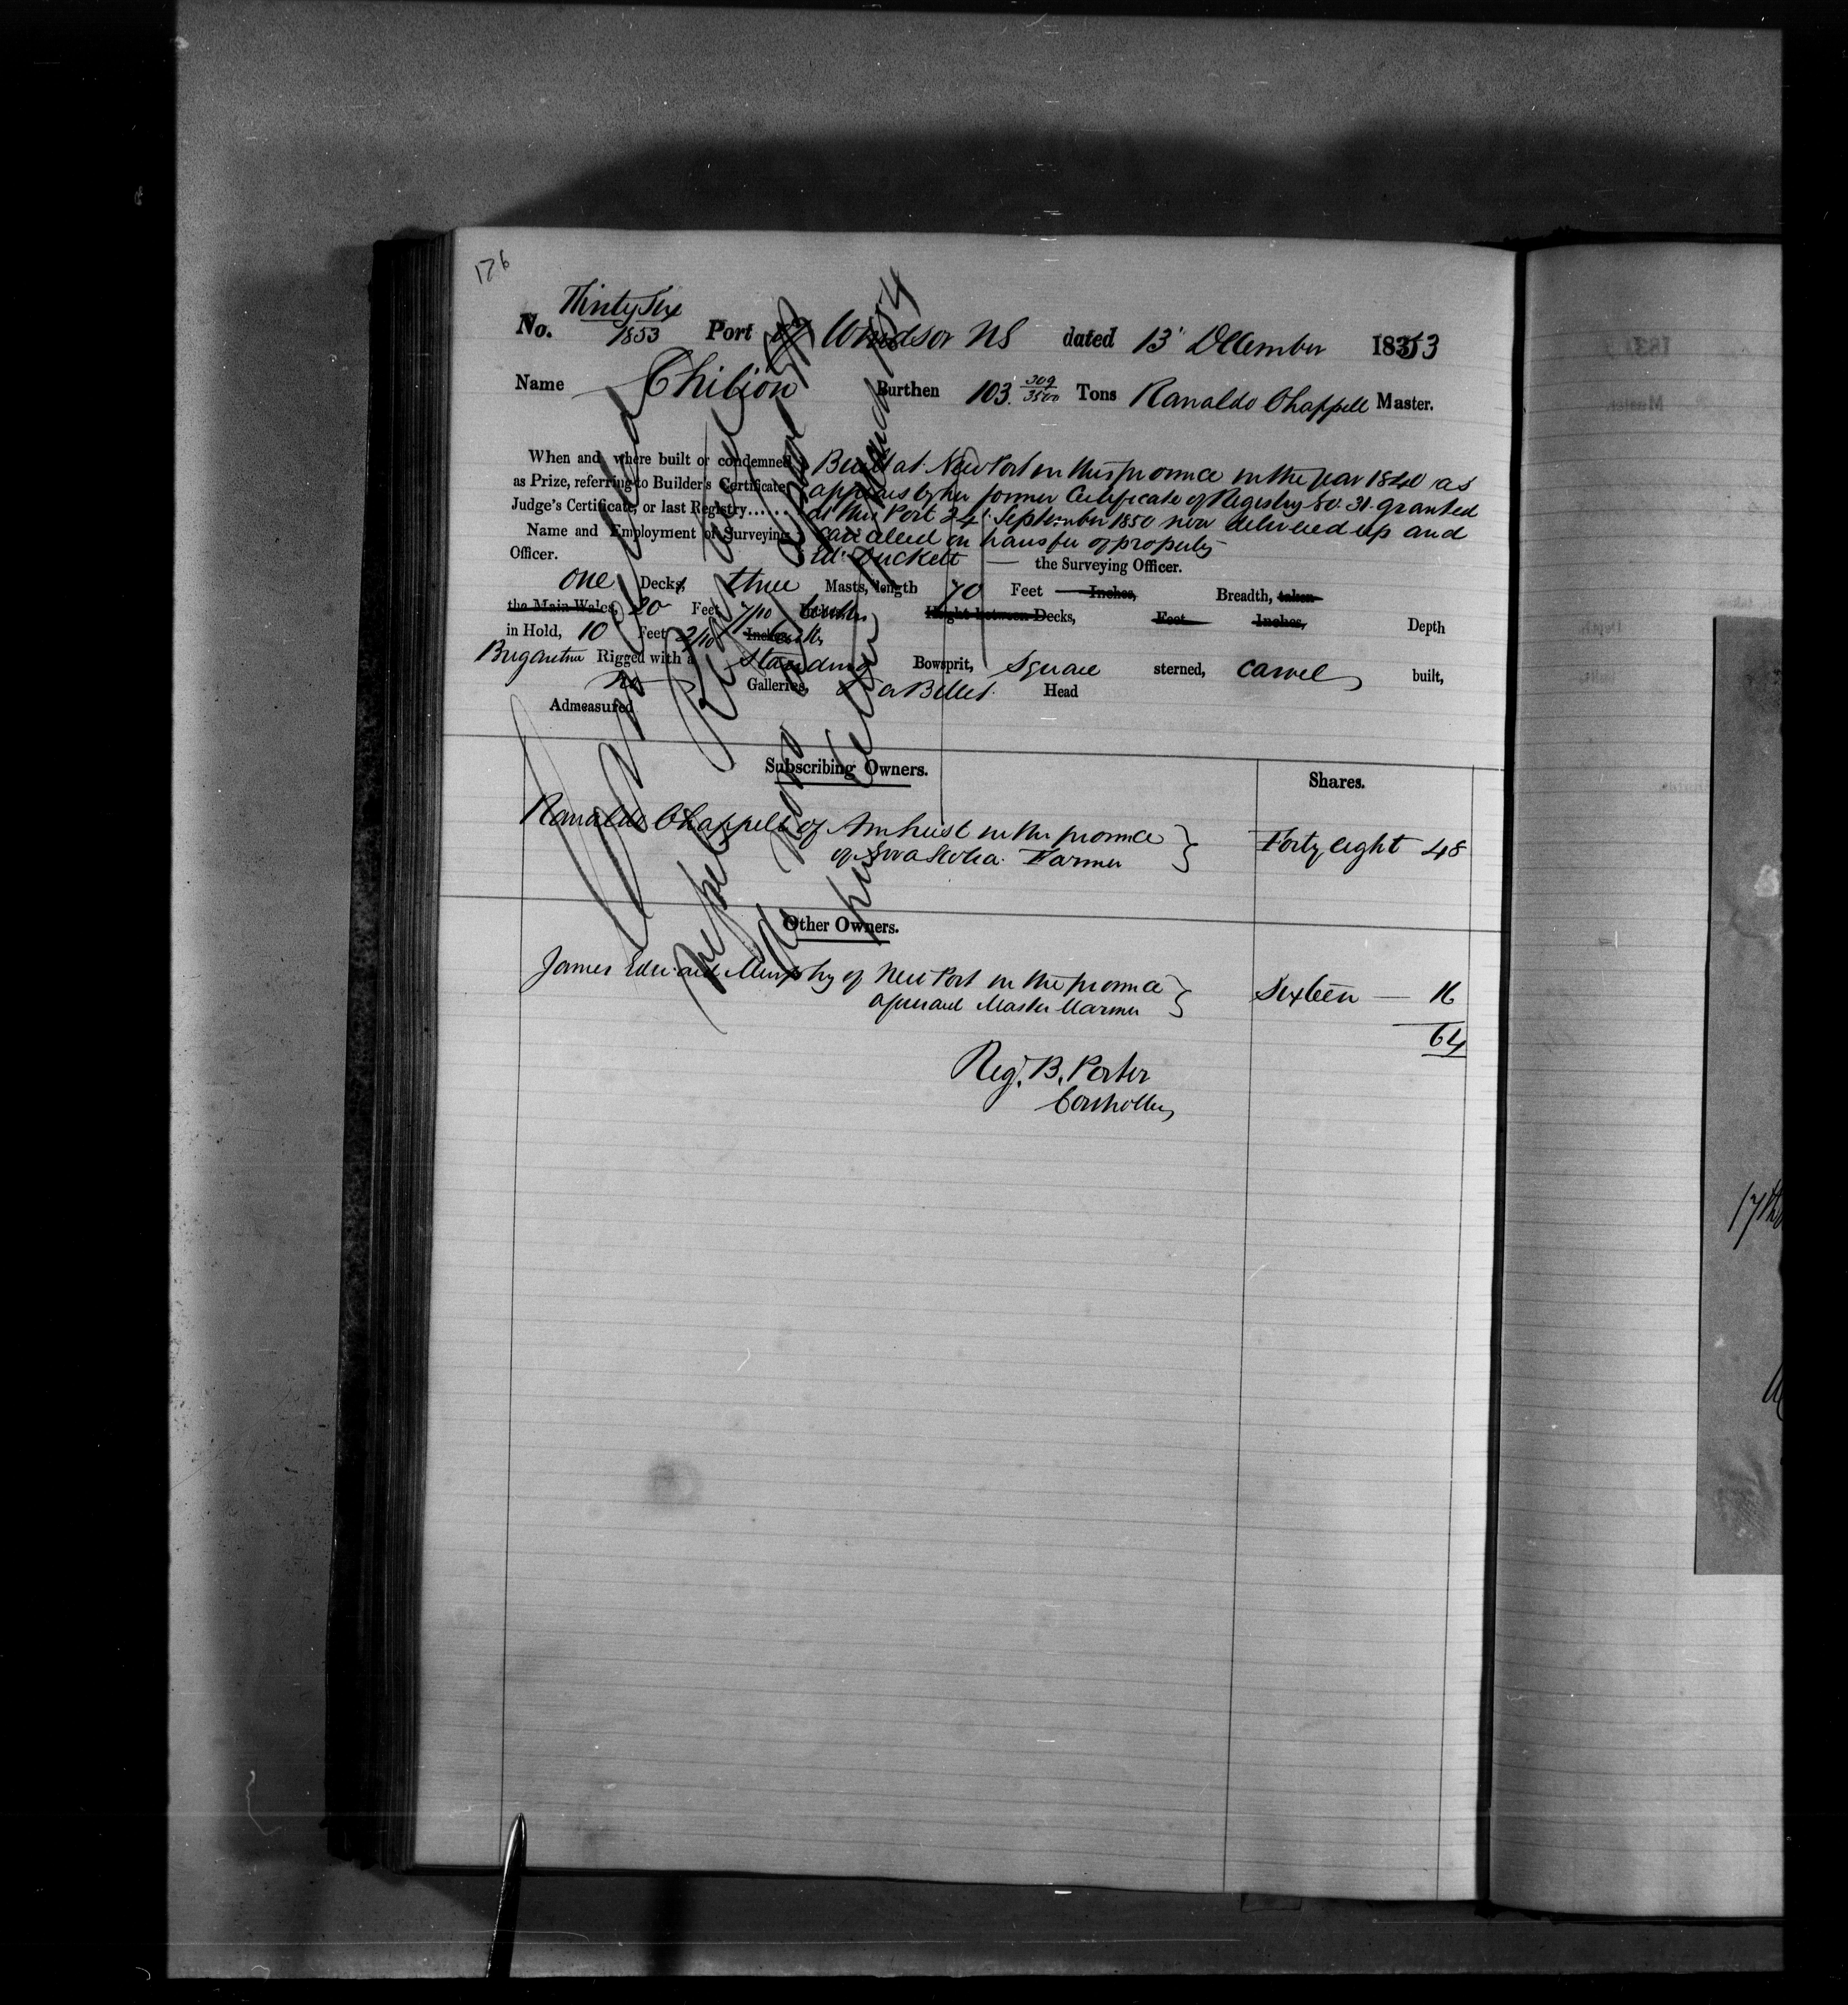 176
No. Thirty Six 1853 Port of Windsor NS dated 13' December 1853
Name Chilion Burthen 103. 309/3500 Tons Ranaldo Chappell Master.
When and where built or condemned, Built at New Port in this province in the year 1840 as
as Prize, referring to Builder's Certificate, appears by her former Certificate of Registry No. 31. granted
Judge's Certificate, or last Registry...... at this Port 24' September 1850 now delivered up and
Name and Employment of Surveying cancelled on transfer of property
Officer. Ed. Duckett — the Surveying Officer.
one Decks, three Masts, length 70 Feet Inches, Breadth, taken
the Main Wales, 20 Feet 7/10 Inches Height between Decks, Feet Inches, Depth
in Hold, 10 Feet 2/10 Inches
Brigantine Rigged with a Standing Bowsprit, Square sterned, carvel built,
no Galleries, & a Billet Head
Admeasured
Subscribing Owners. Shares.
Ranaldo Chappell of Amherst in the province
of Nova Scotia Farmer } Forty eight 48
Other Owners.
James Edward Murphy of New Port in the province
aforesaid Master Mariner } Sixteen — 16
64
Reg. B. Porter
Controller
17th